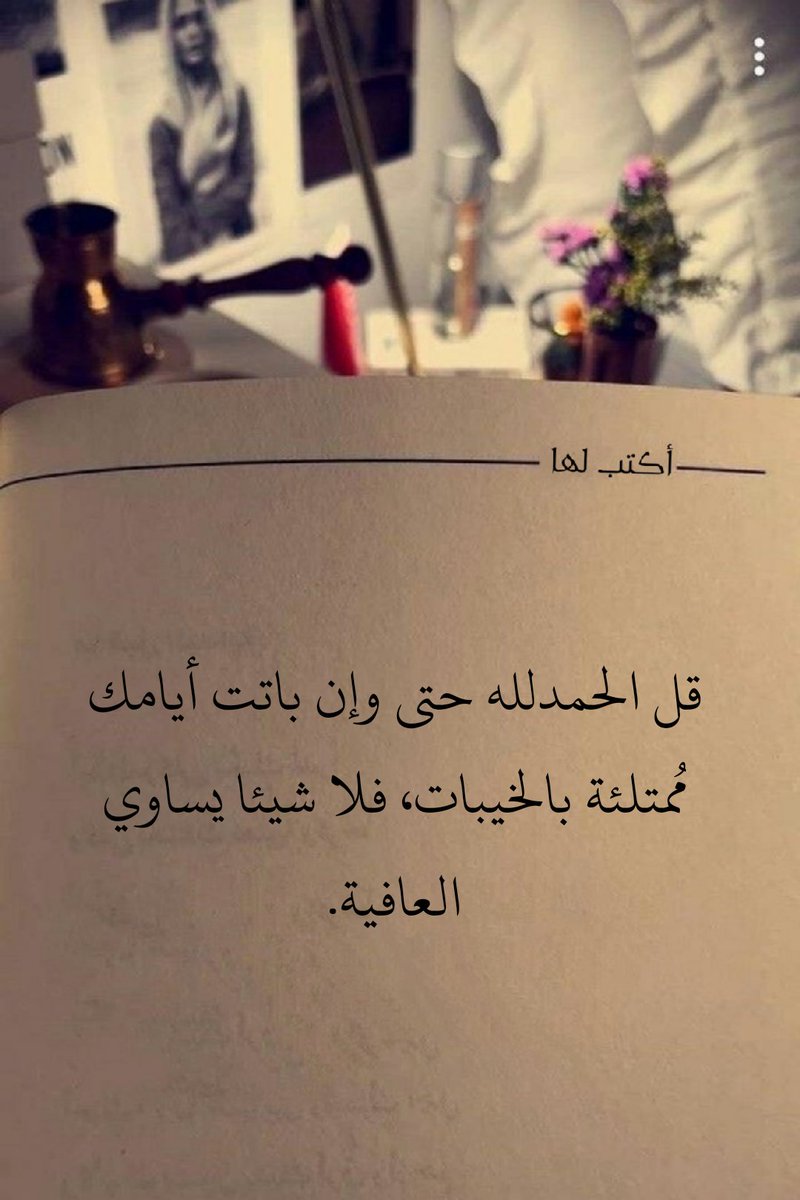 أكتب لها
قل الحمدلله حتى وإن باتت أيامك
مُمتلئة بالخيبات، فلا شيئا يساوي
العافية.